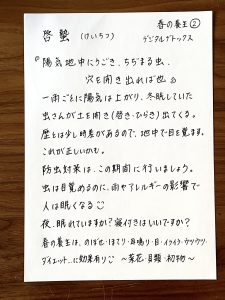 春の養生②
啓蟄（けいちつ）
デジタルデトックス
『陽気地中にうごき、ちぢまる虫、
穴を開き出れば也』
一雨ごとに陽気は上がり、冬眠していた
虫さんが土を開き（啓き・ひらき）出てくる。
暦とは少し時差があるので、地中で目を覚ます、
これが正しいかも。
防虫対策は、この期間に行いましょう。
虫は目覚めるのに、雨やアレルギーの影響で
人は眠くなる
夜、眠れていますか？寝付きはいいですか？
春の養生は、のぼせ・ほてり・耳鳴り・目・イライラ・ウツウツ・
ダイエット、に効果有り
～菜花・貝類・初物～